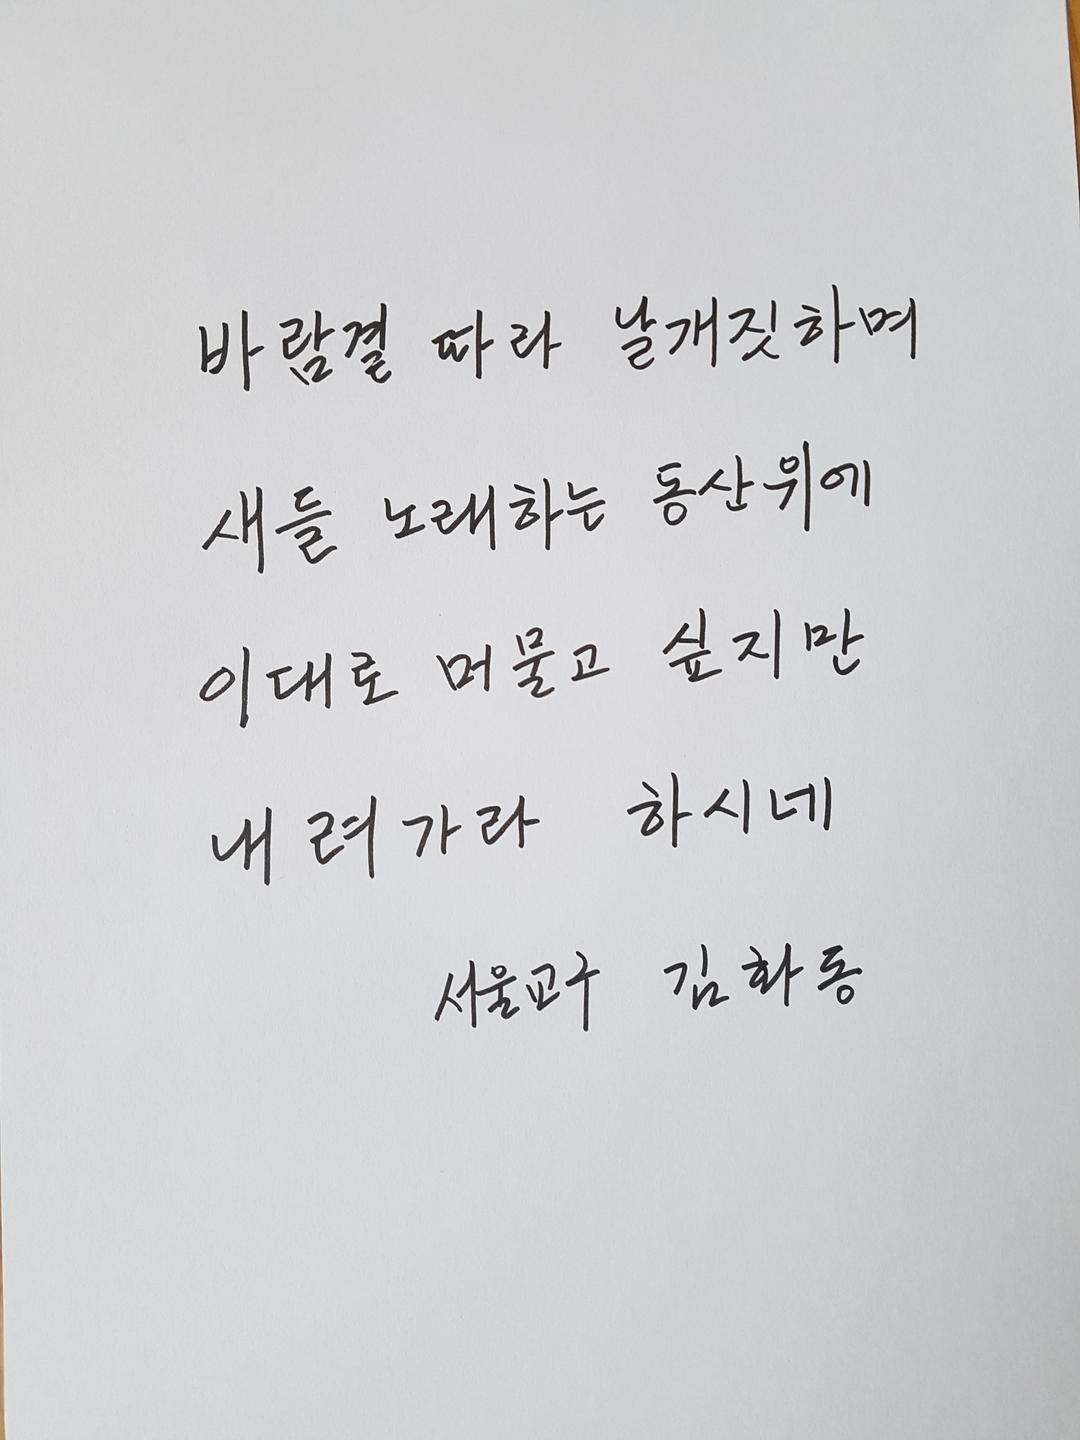 바람결 따라 날개짓하며
새들 노래하는 동산위에
이대로 머물고 싶지만
내려가라 하시네
서울교구 김화동